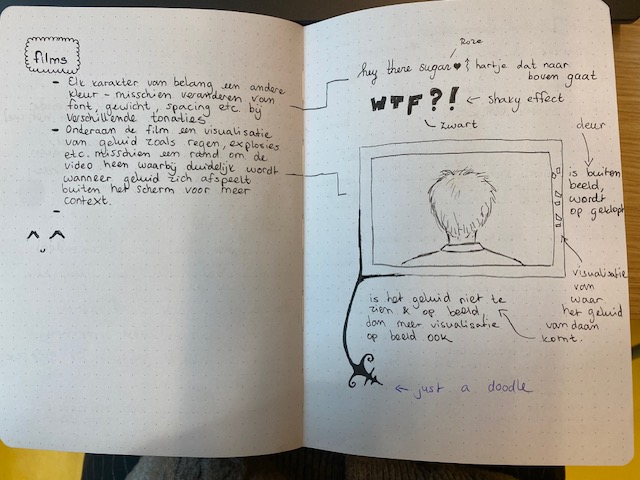 films
- Elk karakter van belang een andere
kleur - misschien veranderen van
font, gewicht, spacing etc. bij
verschillende tonaties
- Onderaan de film een visualisatie
van geluid zoals regen, explosies
etc. misschien een rand om de
video heen waarbij duidelijk wordt
wanneer geluid zich afspeelt
buiten het scherm voor meer
context.
-
Roze
hey there sugar♥
hartje dat naar
boven gaat
WTF?!
← shaky effect
zwart
deur
is buiten
beeld,
wordt
op geklopt
visualisatie
van
waar
het geluid
vandaan
komt.
is het geluid niet te
zien & op beeld,
dan meer visualisatie
op beeld ook
← just a doodle